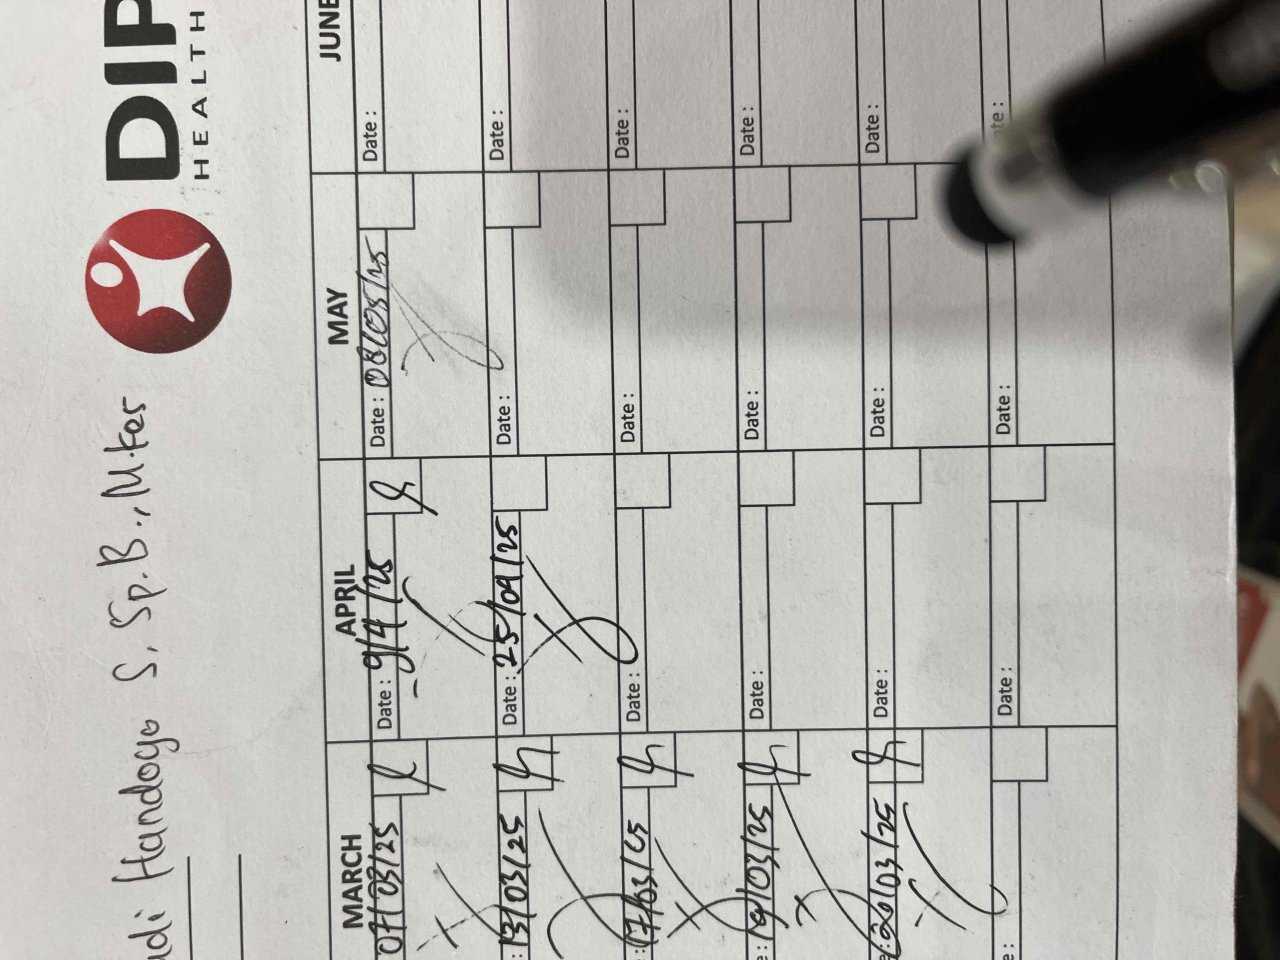 DIP
HEALTH
Handogo S, Sp.B., M.Kes
MARCH APRIL MAY JUNE
07/03/25 Date : 9/4/25 Date : 08/05/25 Date :
13/03/25 Date : 25/04/25 Date : Date :
17/03/25 Date : Date : Date :
19/03/25 Date : Date : Date :
20/03/25 Date : Date : Date :
Date : Date :